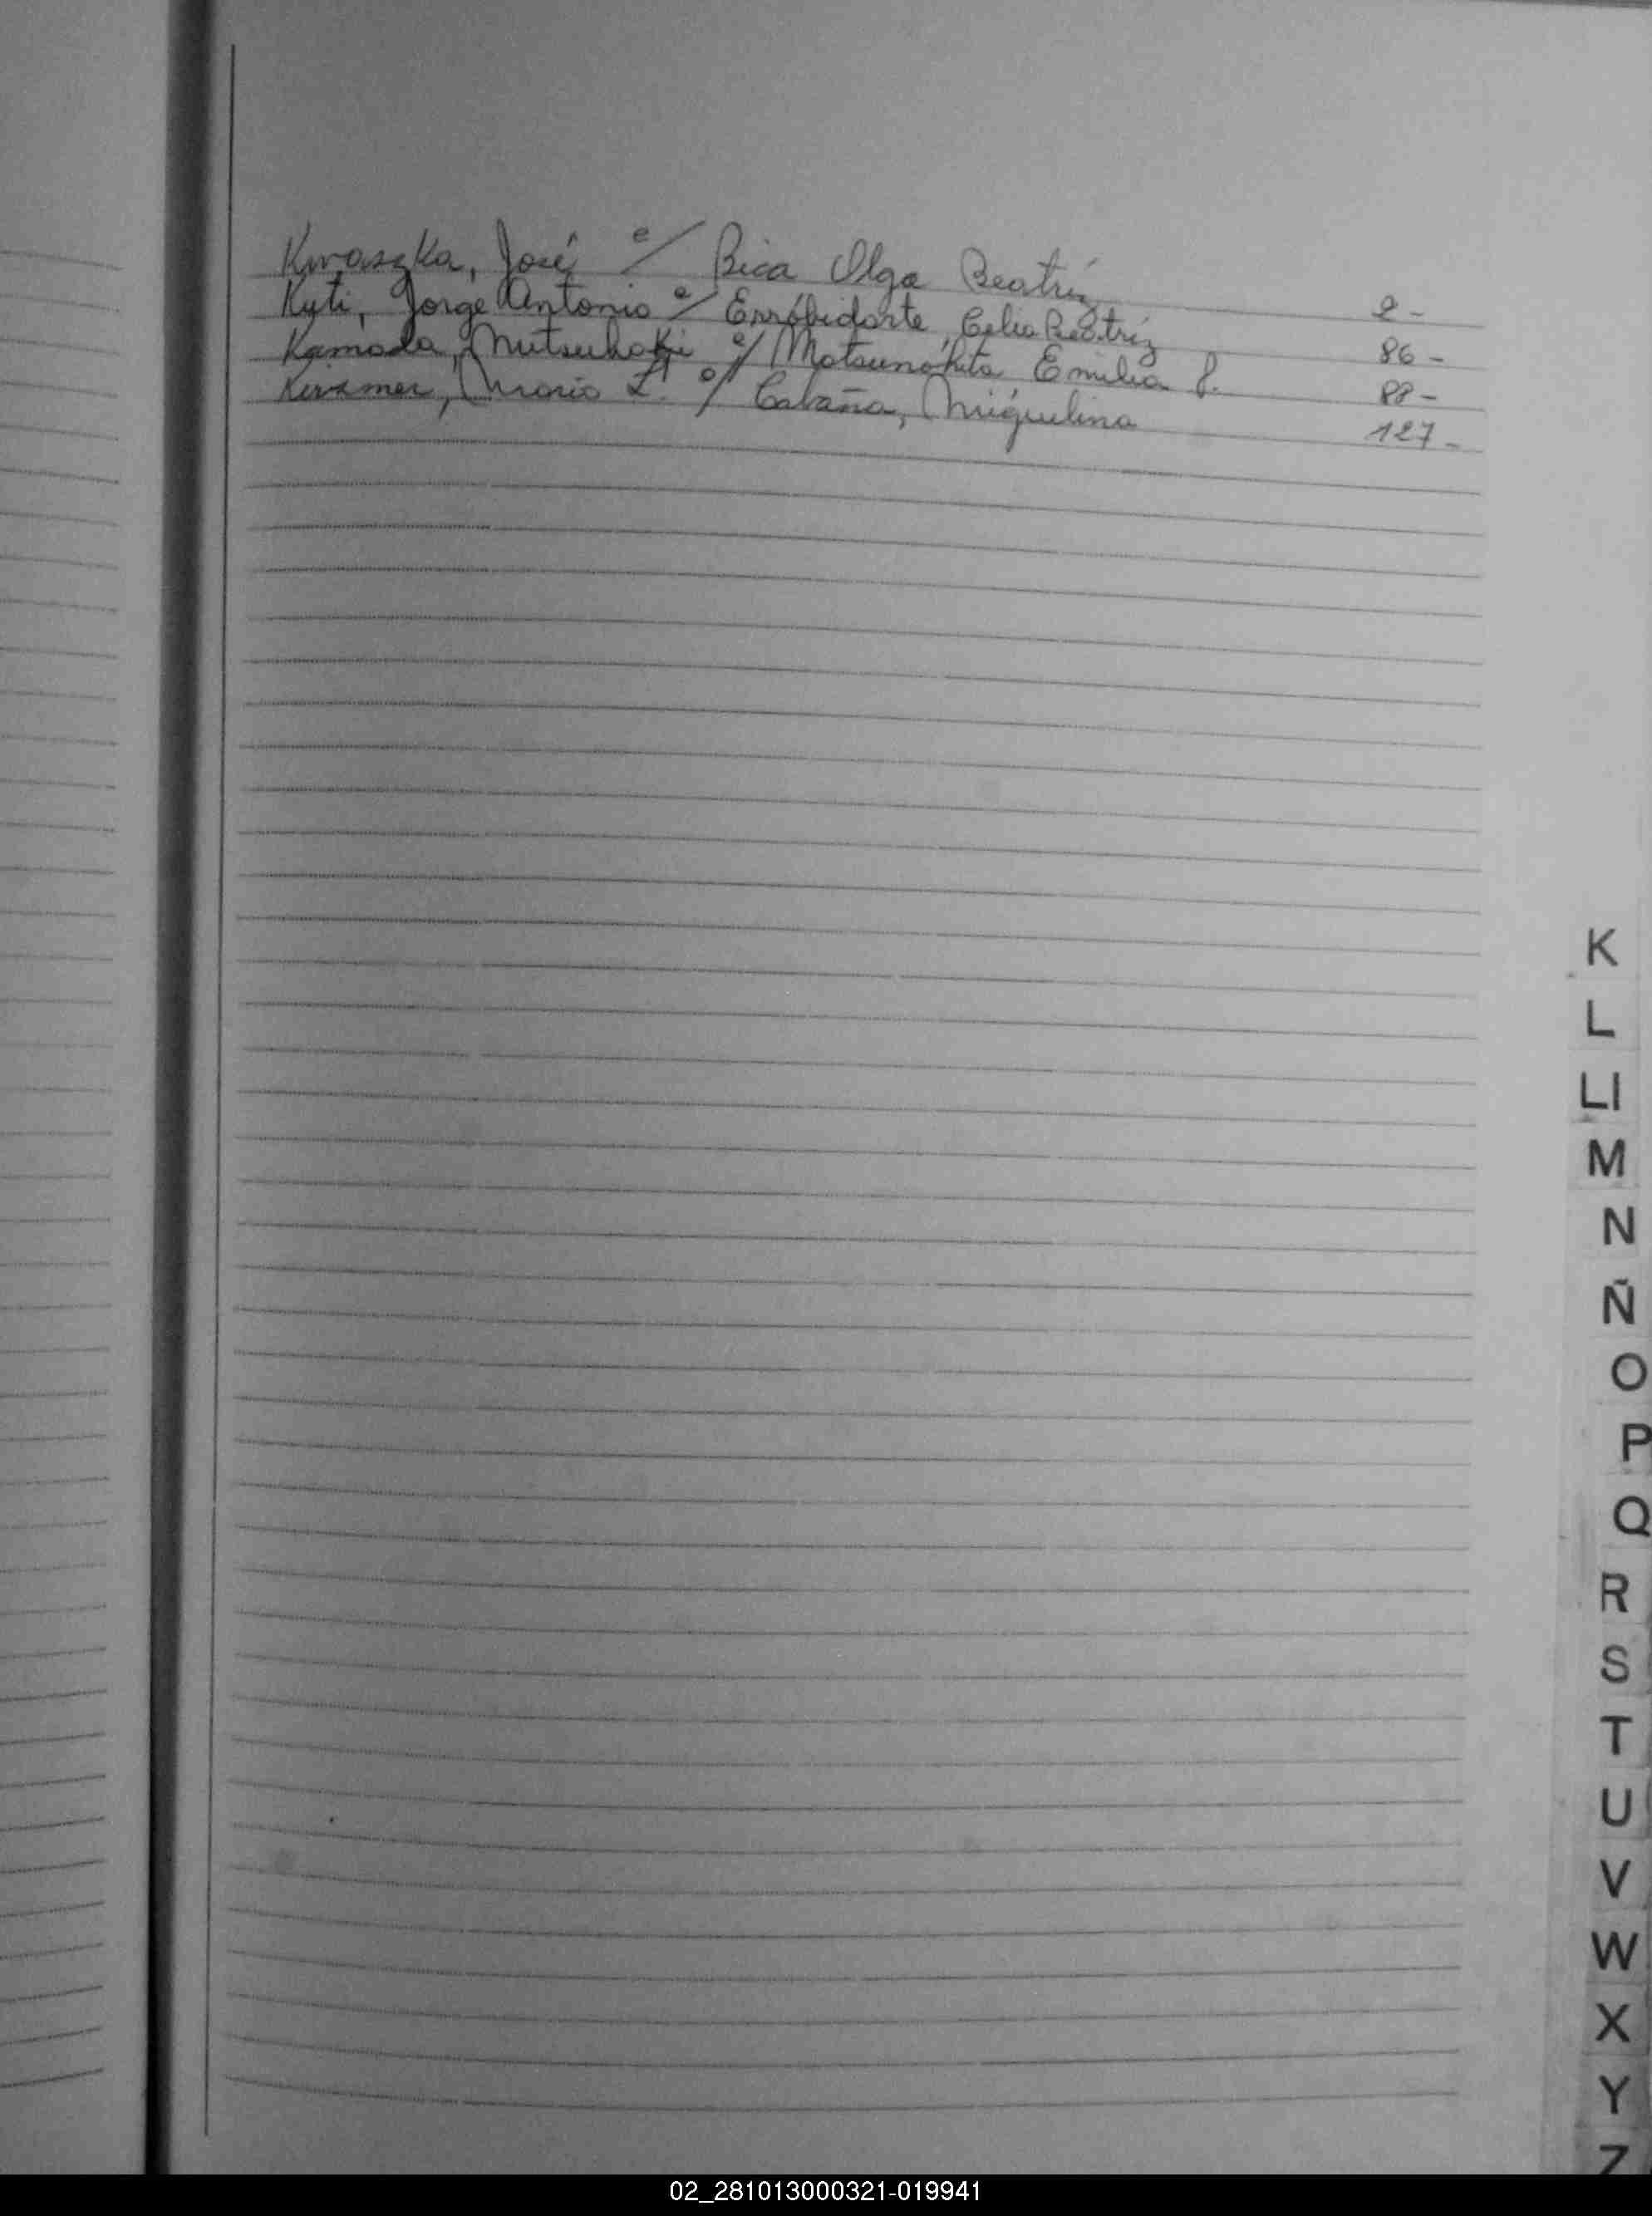 Kwaszka, José c/ Bica Olga Beatríz 2-
Kyti, Jorge Antonio c/ Erróbidarte, Celia Beatríz 86-
Kamada, Mutsuhaki c/ Matsunokita Emilia P. 88-
Mario L. c/ Cabaña, Miguelina 127-
K
L
Ll
M
N
Ñ
O
P
Q
R
S
T
U
V
W
X
Y
Z
02_281013000321-019941